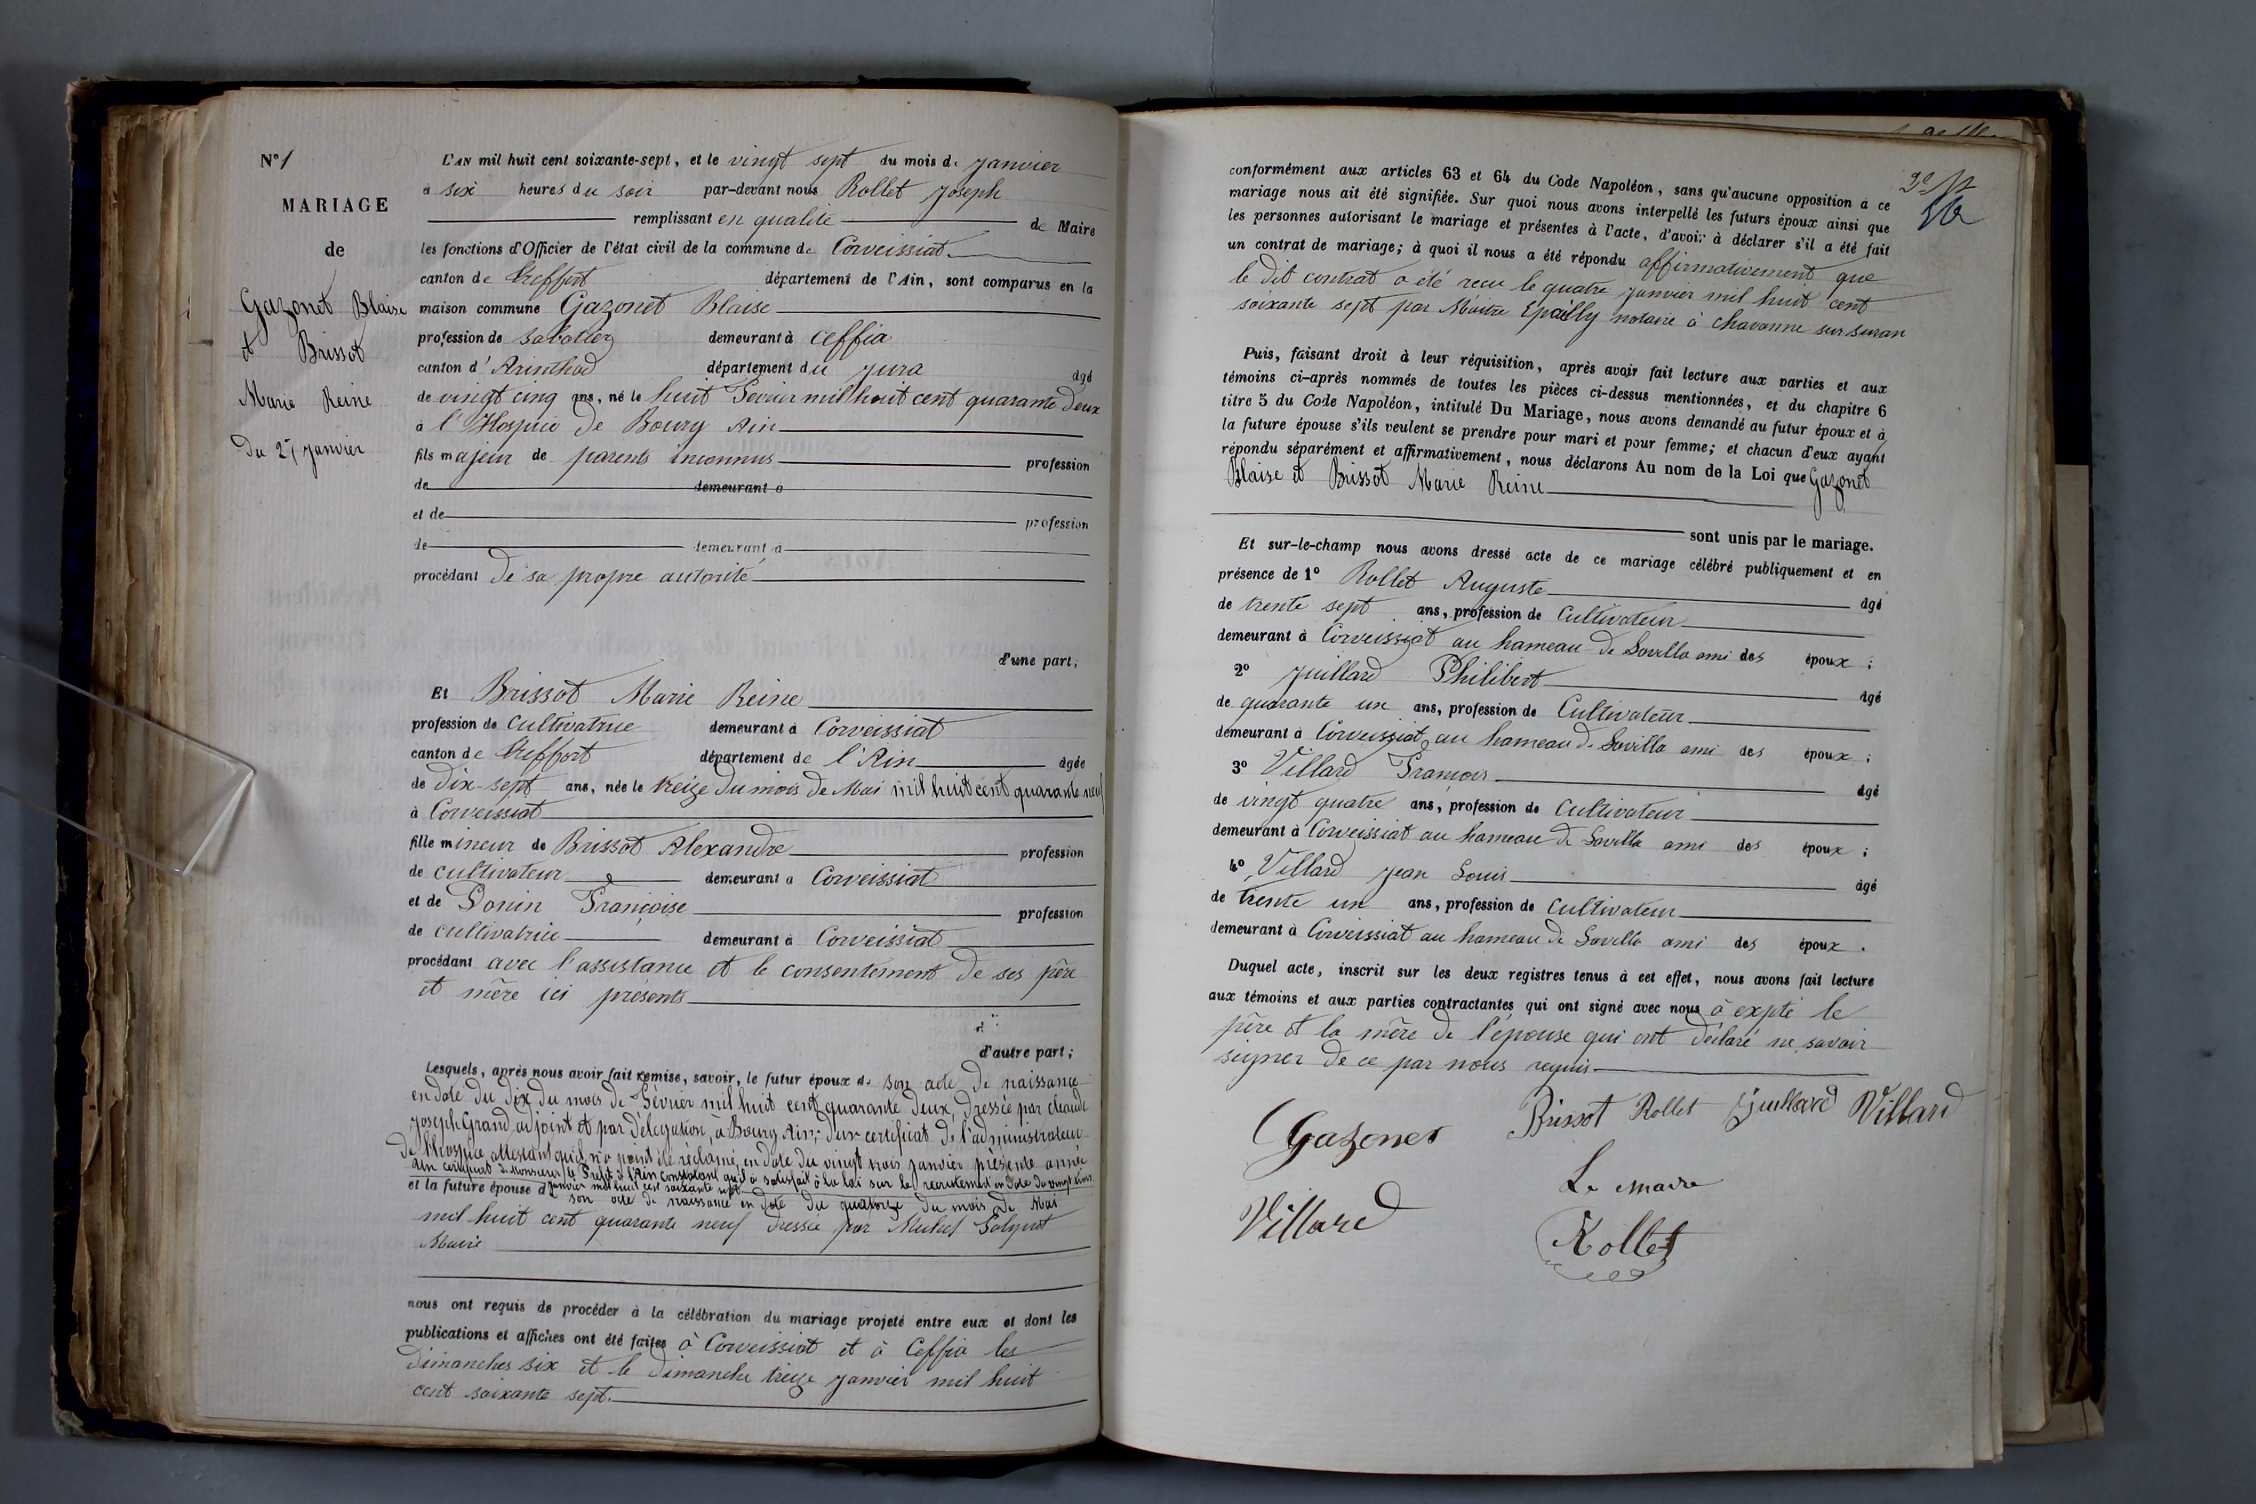 N° 1
MARIAGE
de
Gazonet Blaise
et Brissot
Marie Reine
Du 27 janvier
L'AN mil huit cent soixante-sept, et le vingt sept du mois de janvier
à six heures du soir par-devant nous Rollet Joseph
remplissant en qualité de Maire
les fonctions d'Officier de l'état civil de la commune de Corveissiat
canton de treffort département de l'Ain, sont comparus en la
maison commune Gazonet Blaise
profession de sabotier demeurant à Ceffia
canton d'Arinthod département du jura âgé
de vingt cinq ans, né le huit Février mil huit cent quarante deux
à l'Hospice de Bourg Ain
fils majeur de parents inconnus profession
de demeurant à
et de profession
de demeurant à
procédant de sa propre autorité
d'une part;
Et Brissot Marie Reine
profession de cultivatrice demeurant à Corveissiat
canton de treffort département de l'Ain âgée
de dix-sept ans, née le treize du mois de Mai mil huit cent quarante neuf
à Corveissiat
fille mineur de Brissot Alexandre profession
de cultivateur demeurant à Corveissiat
et de Donin Françoise profession
de cultivatrice demeurant à Corveissiat
procédant avec l'assistance et le consentement de ses père
et mère ici présents
d'autre part;
Lesquels, après nous avoir fait remise, savoir, le futur époux de son acte de naissance
en date du dix du mois de Février mil huit cent quarante deux, dressée par claude
joseph Grand adjoint et par délégation, à Bourg Ain, d'un certificat de l'administrateur
de l'Hospice attestant qu'il n'a point été réclamé, en date du vingt trois janvier présente année
un certificat de Monsieur le Préfet de l'Ain constatant qu'il a satisfait à la loi sur le recrutement en date du vingt trois
janvier mil huit cent soixante sept
et la future épouse de son acte de naissance en date du quatorze du mois de Mai
mil huit cent quarante neuf dressée par Michel
Maire
nous ont requis de procéder à la célébration du mariage projeté entre eux et dont les
publications et affiches ont été faites à Corveissiat et à Ceffia les
dimanches six et le dimanche treize janvier mil huit
cent soixante sept.
conformément aux articles 63 et 64 du Code Napoléon, sans qu'aucune opposition à ce
mariage nous ait été signifiée. Sur quoi nous avons interpellé les futurs époux ainsi que
les personnes autorisant le mariage et présentes à l'acte, d'avoir à déclarer s'il a été fait
un contrat de mariage; à quoi il nous a été répondu affirmativement que
le dit contrat a été recu le quatre janvier mil huit cent
soixante sept par Maitre Epailly notaire à chavanne sur suran
Puis, faisant droit à leur réquisition, après avoir fait lecture aux parties et aux
témoins ci-après nommés de toutes les pièces ci-dessus mentionnées, et du chapitre 6
titre 5 du Code Napoléon, intitulé Du Mariage, nous avons demandé au futur époux et à
la future épouse s'ils veulent se prendre pour mari et pour femme; et chacun d'eux ayant
répondu séparément et affirmativement, nous déclarons Au nom de la Loi que Gazonet
Blaise et Brissot Marie Reine
sont unis par le mariage.
Et sur-le-champ nous avons dressé acte de ce mariage célébré publiquement et en
présence de 1° Rollet Auguste âgé
de trente sept ans, profession de Cultivateur
demeurant à Corveissiat au hameau de Sovilla ami des époux;
2° juillard Philibert âgé
de quarante un ans, profession de Cultivateur
demeurant à Corveissiat au hameau de Sovilla ami des époux;
3° Villard François âgé
de vingt quatre ans, profession de cultivateur
demeurant à Corveissiat au hameau de Sovilla ami des époux;
4° Villard jean Louis âgé
de trente un ans, profession de cultivateur
demeurant à Corveissiat au hameau de Sovilla ami des époux.
Duquel acte, inscrit sur les deux registres tenus à cet effet, nous avons fait lecture
aux témoins et aux parties contractantes qui ont signé avec nous à expté le
père et la mère de l'épouse qui ont déclaré ne savoir
signer de ce par nous requis
Gazonet Brissot Rollet Juillard Villard
Villard
Le maire
Rollet